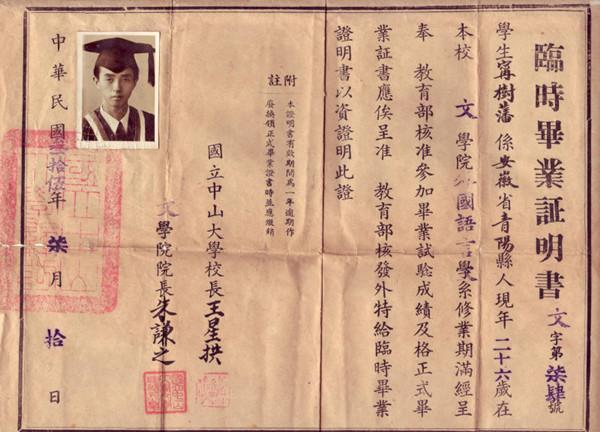 臨時畢業証明書
文字第柒肆號
學生甯樹藩係安徽省青陽縣人現年二十六歲在
本校文學院外國語言學系修業期滿經呈
奉教育部核准參加畢業試驗成績及格正式畢
業証書應俟呈准教育部核發外特給臨時畢業
證明書以資證明此證
附註
本證明書有效期間為一年逾期作
廢換領正式畢業證書時並應繳銷
國立中山大學校長王星拱
文學院院長朱謙之
中華民國叁拾伍年柒月拾日